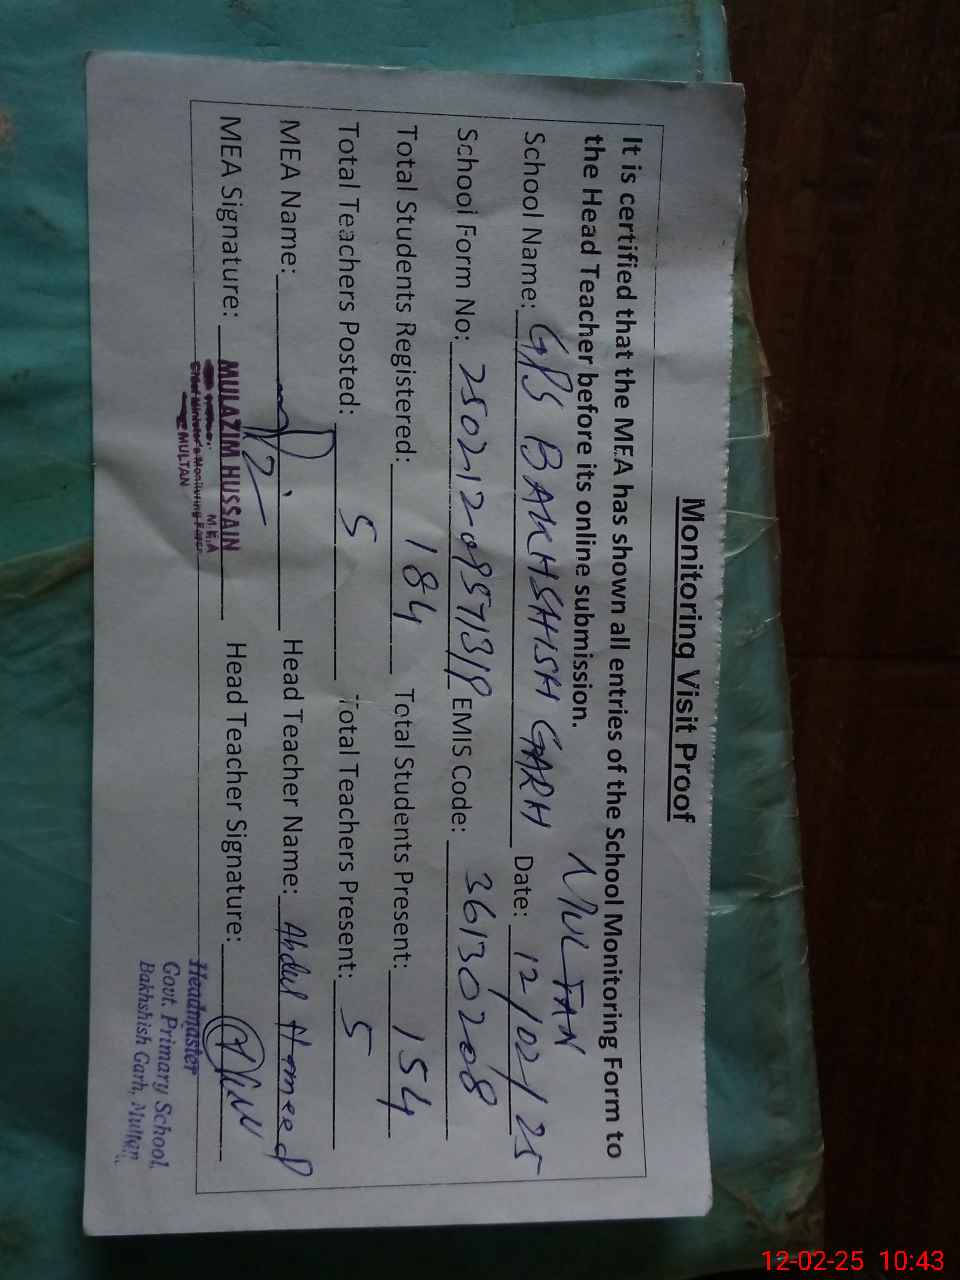 Monitoring Visit Proof
It is certified that the MEA has shown all entries of the School Monitoring Form to
the Head Teacher before its online submission.
MULTAN
School Name: GPS BAKHSHISH GARH Date: 12/02/25
School Form No: EMIS Code: 36130208
Total Students Registered: 184 Total Students Present: 154
Total Teachers Posted: 5 Total Teachers Present: 5
MEA Name: Head Teacher Name: Abdul Hameed
MEA Signature: Head Teacher Signature:
MULAZIM HUSSAIN
M.E.A
Chief Minister's Monitoring Force
MULTAN
Headmaster
Govt. Primary School,
Bakhshish Garh, Multan
12-02-25 10:43